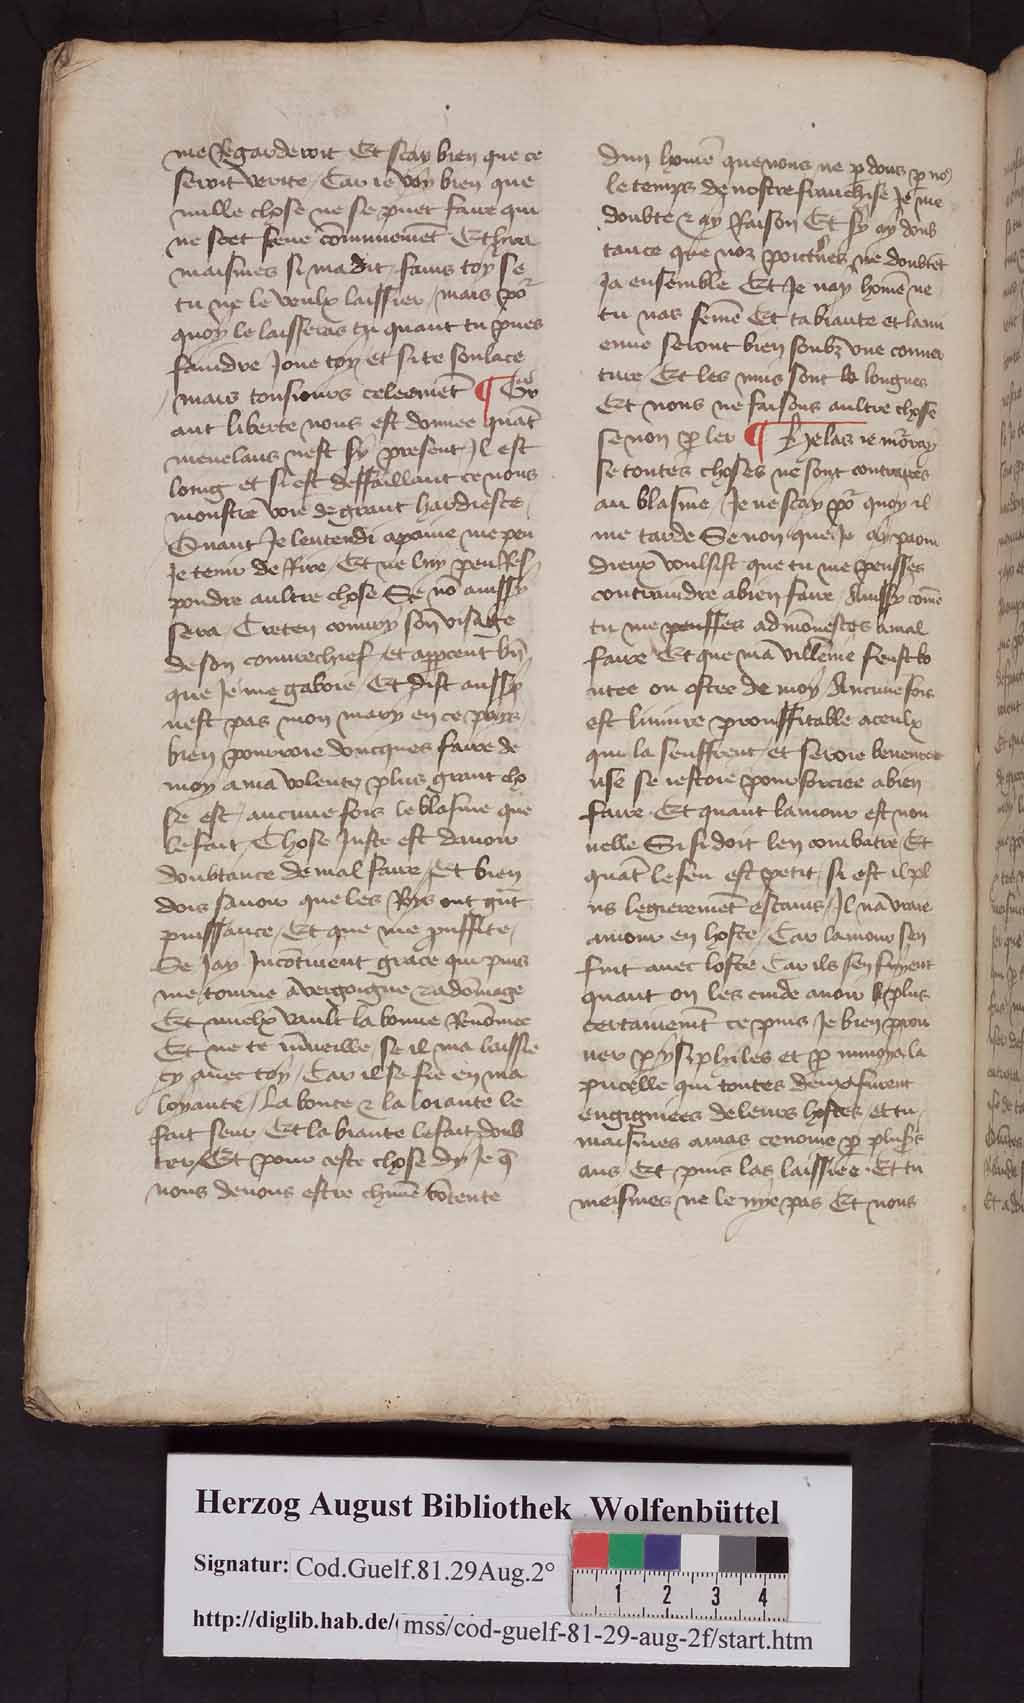 me Regarderoit Et scay bien que ce
seroit verite / Car ie voy bien que
nulle chose ne se puet faire qui
ne soet sceue cōmunemēt Ethira
maismes si ma dit / fains toy se
tu ne le veulx laissier / mais por̄
quoy le laisseras tu quant tu pues
faindre Joue toy et si te soulace
mais tousiours celeemēt ¶ Gr̄
ant liberte nous est donnee quāt
menelaus nest sy present Il est
loing et si est deffaillant ce nous
monstre voie de grant hardiesce
Quant Je lentendi apaine me peu
Je tenir de Rire / Et ne luy peu Res
pondre aultre chose Se nō aussy
sera / Creten couury son visage
de son couurechief et appceut bn̄
que Je me gaboie / Et dist aussy
nest pas mon mary en ce pays
bien pourroie doncques faire de
moy a ma volente plus grant cho
se est / aucune fois le blasme que
le fait / Chose Juste est dauoir
doubtance de mal faire / Et bien
dois sauoir que les Roys ont grāt
puissance / Et que me prouffite /
Se Jay Incotinent grace qui puis
me tourne a vergoigne & a dōmage
Et mielx vault la bonne Renōmee
Et ne te m̄ueille se il ma laissie
cy auec toy / Car il se fie en ma
loyaute / La bonte & la loiaute le
fait seur Et la biaute le fait doub
ter / Et pour ceste chose dy Je q̄
nous deuons estre chūne cōtente
dun hōme que nous ne p dons p no9
le temps de nostre franchise Je me
doubte & ay Raison Et sy ay doub
tance que noz poictures ne doubtēt
Ja ensemble Et Je nay hōme ne
tu nas femē Et ta biaute et la mi
enne seront bien soubz vne couuer
ture / Et les nuis sont lo longues
Et nous ne faisons aultre chose
se non p̄ler ¶ Helas ie m̄ray
se toutes choses ne sont contraires
au blasme / Je ne scay por̄ quoy il
me tarde Se non que Je ay paour
dieux voulsist que tu me peusses
contraindre a bien faire / Aussy cōme
tu me peusses admōnestes a mal
faire Et que ma villēnie feust bo
utee ou ostee de moy / Aucune fois
est Iniure prouffitable a ceulx
qui la seuffrent / et seroie beneuree
use se iestoie pour forciee a bien
faire / Et quant lamour est nou
uelle Si si doit len combatre Et
quāt le feu est petit / si est il pl
us legieremēt estains / Il na vraie
amour en hoste / Car lamour sen
fuit auec loste Car ils sen fuyent
quant on les cuide auoir le plus
certainemēt ce puis Je bien prou
uer p̄ ysiphiles et p̄ minoya la
pucelle qui toutes deux furent
engigniees de leurs hostes / et tu
maismes amas cenome p̄ pluss̄
ans Et puis las laissiee / Et tu
meismes ne le nye pas Et nous
Herzog August Bibliothek Wolfenbüttel
Signatur: Cod.Guelf.81.29Aug.2°
1 2 3 4
http://diglib.hab.de/
mss/cod-guelf-81-29-aug-2f/start.htm